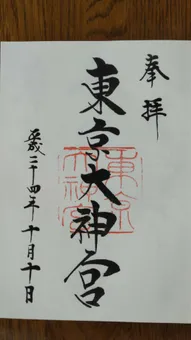 奉拝
東京大神宮
東京大神宮
平成二十四年十月十日